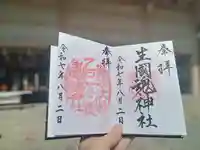 奉拝
生國魂神社
令和七年八月二日
奉拝
令和七年八月二日